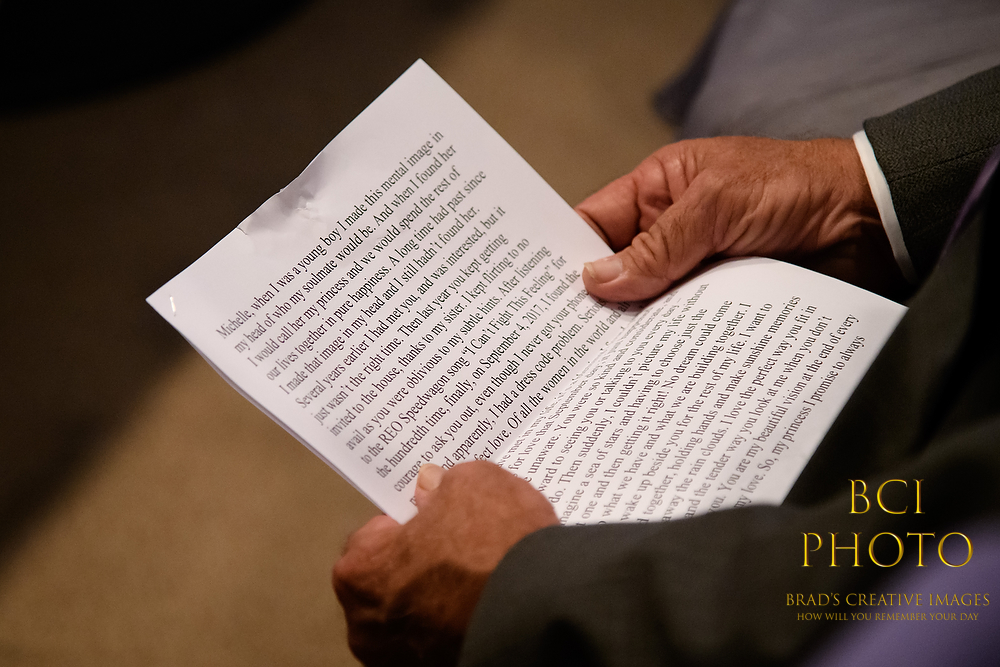 Michelle, when I was a young boy I made this mental image in
my head of who my soulmate would be. And when I found her
I would call her my princess and we would spend the rest of
our lives together in pure happiness. A long time had past since
I made that image in my head and I still hadn't found her.
Several years earlier I had met you, and was interested, but it
just wasn't the right time. Then last year you kept getting
invited to the house, thanks to my sister. I kept flirting to no
avail as you were oblivious to my subtle hints. After listening
to the REO Speedwagon song "I Can't Fight This Feeling" for
the hundredth time, finally, on September 4, 2017, I found the
courage to ask you out, even though I never got your phone
and apparently, I had a dress code problem. Serio
fect love. Of all the women in the world and
for love that
unaware. You were so kind and
ward to seeing you or talking to you every
do. Then suddenly, I couldn't picture my life without
magine a sea of stars and having to choose just the
one and then getting it right! No dream could come
to what we have and what we are building together. I
wake up beside you for the rest of my life. I want to
d together, holding hands and make sunshine memories
away the rain clouds. I love the perfect way you fit in
and the tender way you look at me when you don't
ou. You are my beautiful vision at the end of every
my love. So, my princess I promise to always
BCI
PHOTO
BRAD'S CREATIVE IMAGES
HOW WILL YOU REMEMBER YOUR DAY